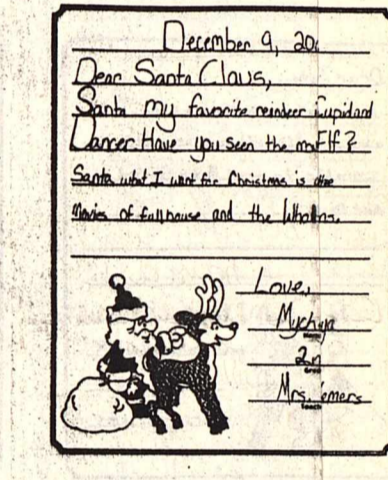 December 9, 20
Dear Santa Claus,
Santa my favorite reindeer Cupid and
Dancer. Have you seen the Elf?
Santa what I want for Christmas is the
Movies of fullhouse and the
Love,
Mychiya
2n
Mrs. emers